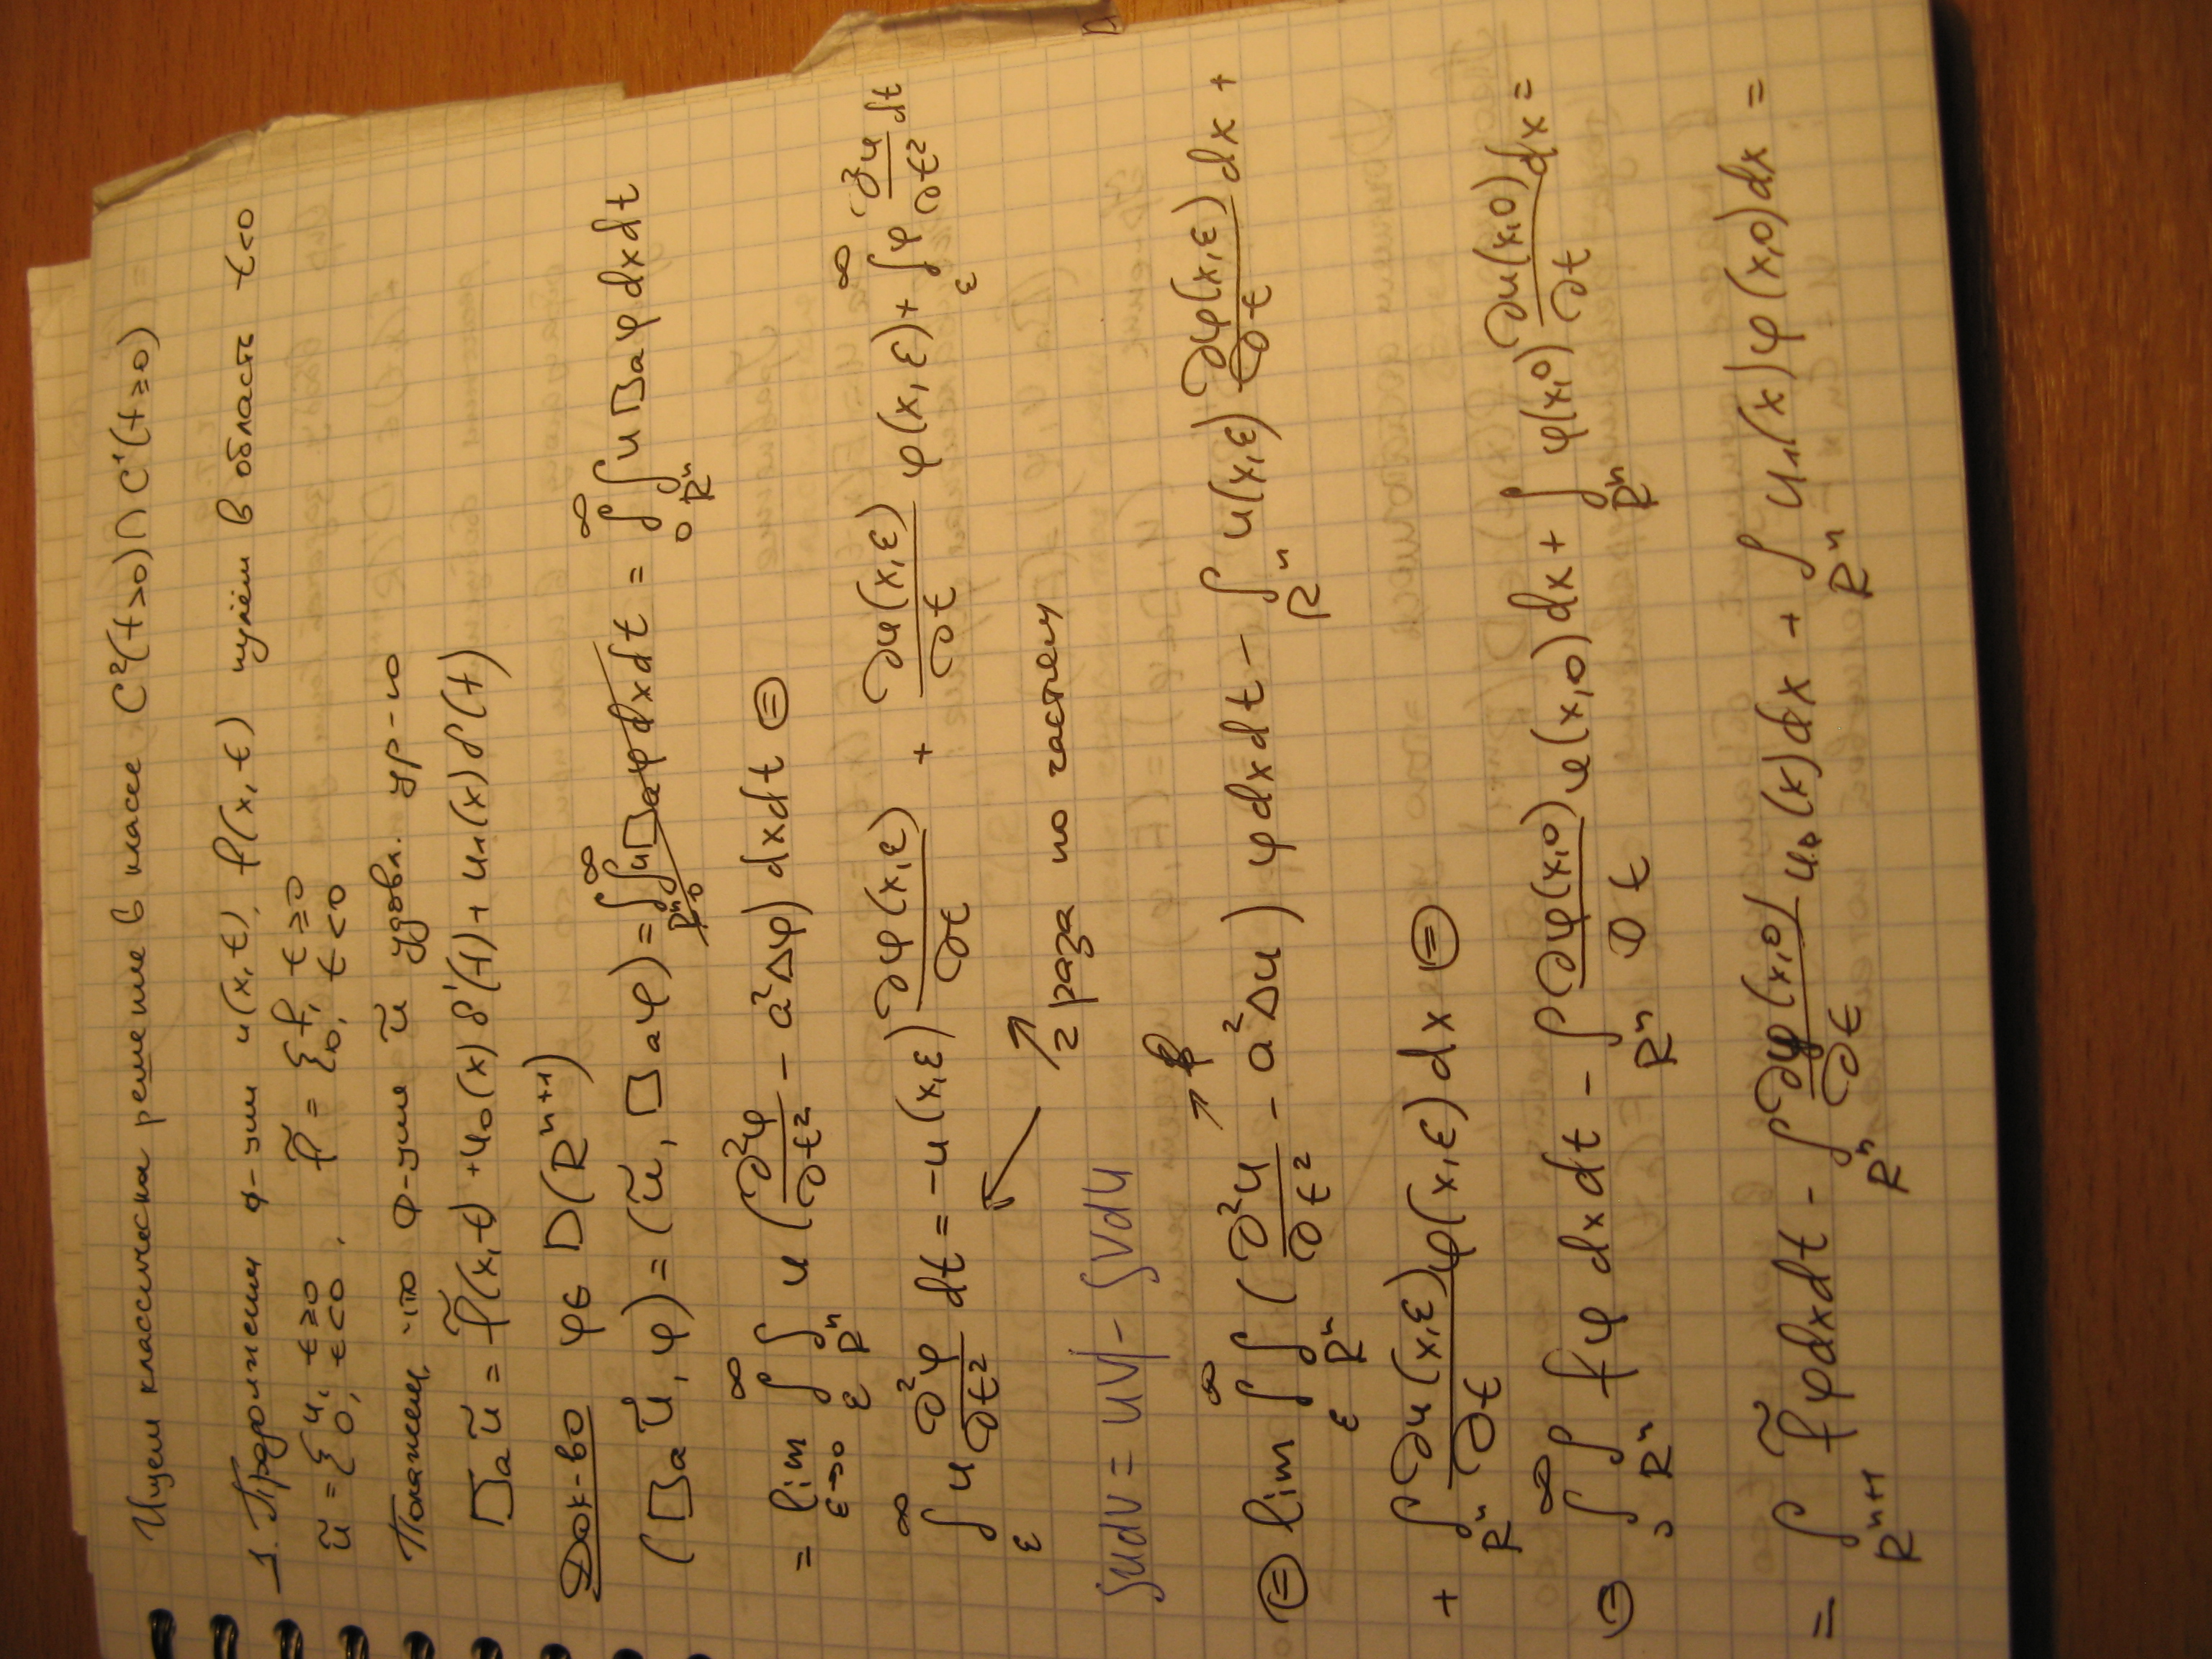 Ищем классическое решение в классе C²(t>0)∩C¹(t≥0)
1. Продолжении ф-ции u(x,t), f(x,t) нулём в область t<0
ũ = { u, t≥0 0, t<0 , f̃ = { f, t≥0 0, t<0
Покажем, что ф-ция ũ удовл. ур-ю
□a ũ = f̃(x,t) + u₀(x) δ'(t) + u₁(x) δ(t)
Док-во φ∈ D(Rⁿ⁺¹)
(□a ũ, φ) = (ũ, □aφ) = = ∫₀^∞ ∫_{Rⁿ} u □aφ dxdt
= lim_{ε→0} ∫_ε^∞ ∫_{Rⁿ} u (∂²φ/∂t² − a²Δφ) dxdt ⊜
∫_ε^∞ u ∂²φ/∂t² dt = −u(x,ε) ∂φ(x,ε)/∂t + ∂u(x,ε)/∂t φ(x,ε) + ∫_ε^∞ φ ∂²u/∂t² dt
2 раза по частям
∫udv = uv| − ∫vdu
⊜ lim ∫_ε^∞ ∫_{Rⁿ} (∂²u/∂t² − a²Δu) φ dxdt − ∫_{Rⁿ} u(x,ε) ∂φ(x,ε)/∂t dx +
+ ∫_{Rⁿ} ∂u(x,ε)/∂t φ(x,ε) dx ⊜
⊜ ∫₀^∞ ∫_{Rⁿ} fφ dxdt − ∫_{Rⁿ} ∂φ(x,0)/∂t u(x,0) dx + ∫_{Rⁿ} φ(x,0) ∂u(x,0)/∂t dx =
= ∫_{Rⁿ⁺¹} f̃ φdxdt − ∫_{Rⁿ} ∂φ(x,0)/∂t u₀(x)dx + ∫_{Rⁿ} u₁(x)φ(x,0)dx =